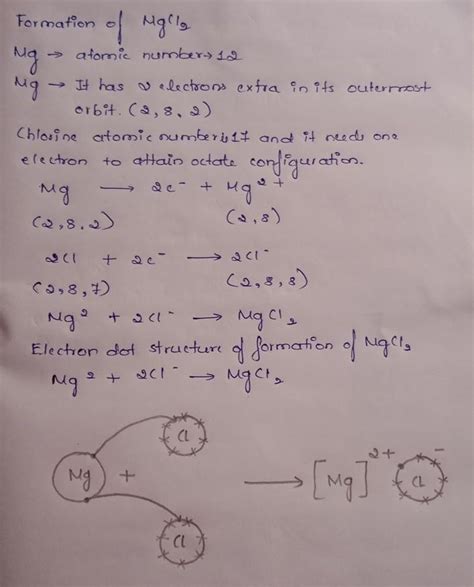 Formation of MgCl₂
Mg → atomic number→12
Mg → It has 2 electrons extra in its outermost
orbit. (2,8,2)
Chlorine atomic number is 17 and it needs one
electron to attain octate configuration.
Mg → 2e⁻ + Mg²⁺
(2,8,2) (2,8)
2Cl + 2e⁻ → 2Cl⁻
(2,8,7) (2,8,8)
Mg² + 2Cl⁻ → MgCl₂
Electron dot structure of formation of MgCl₂
Mg² + 2Cl⁻ → MgCl₂
Cl
Mg + → [Mg]²⁺ Cl⁻
Cl